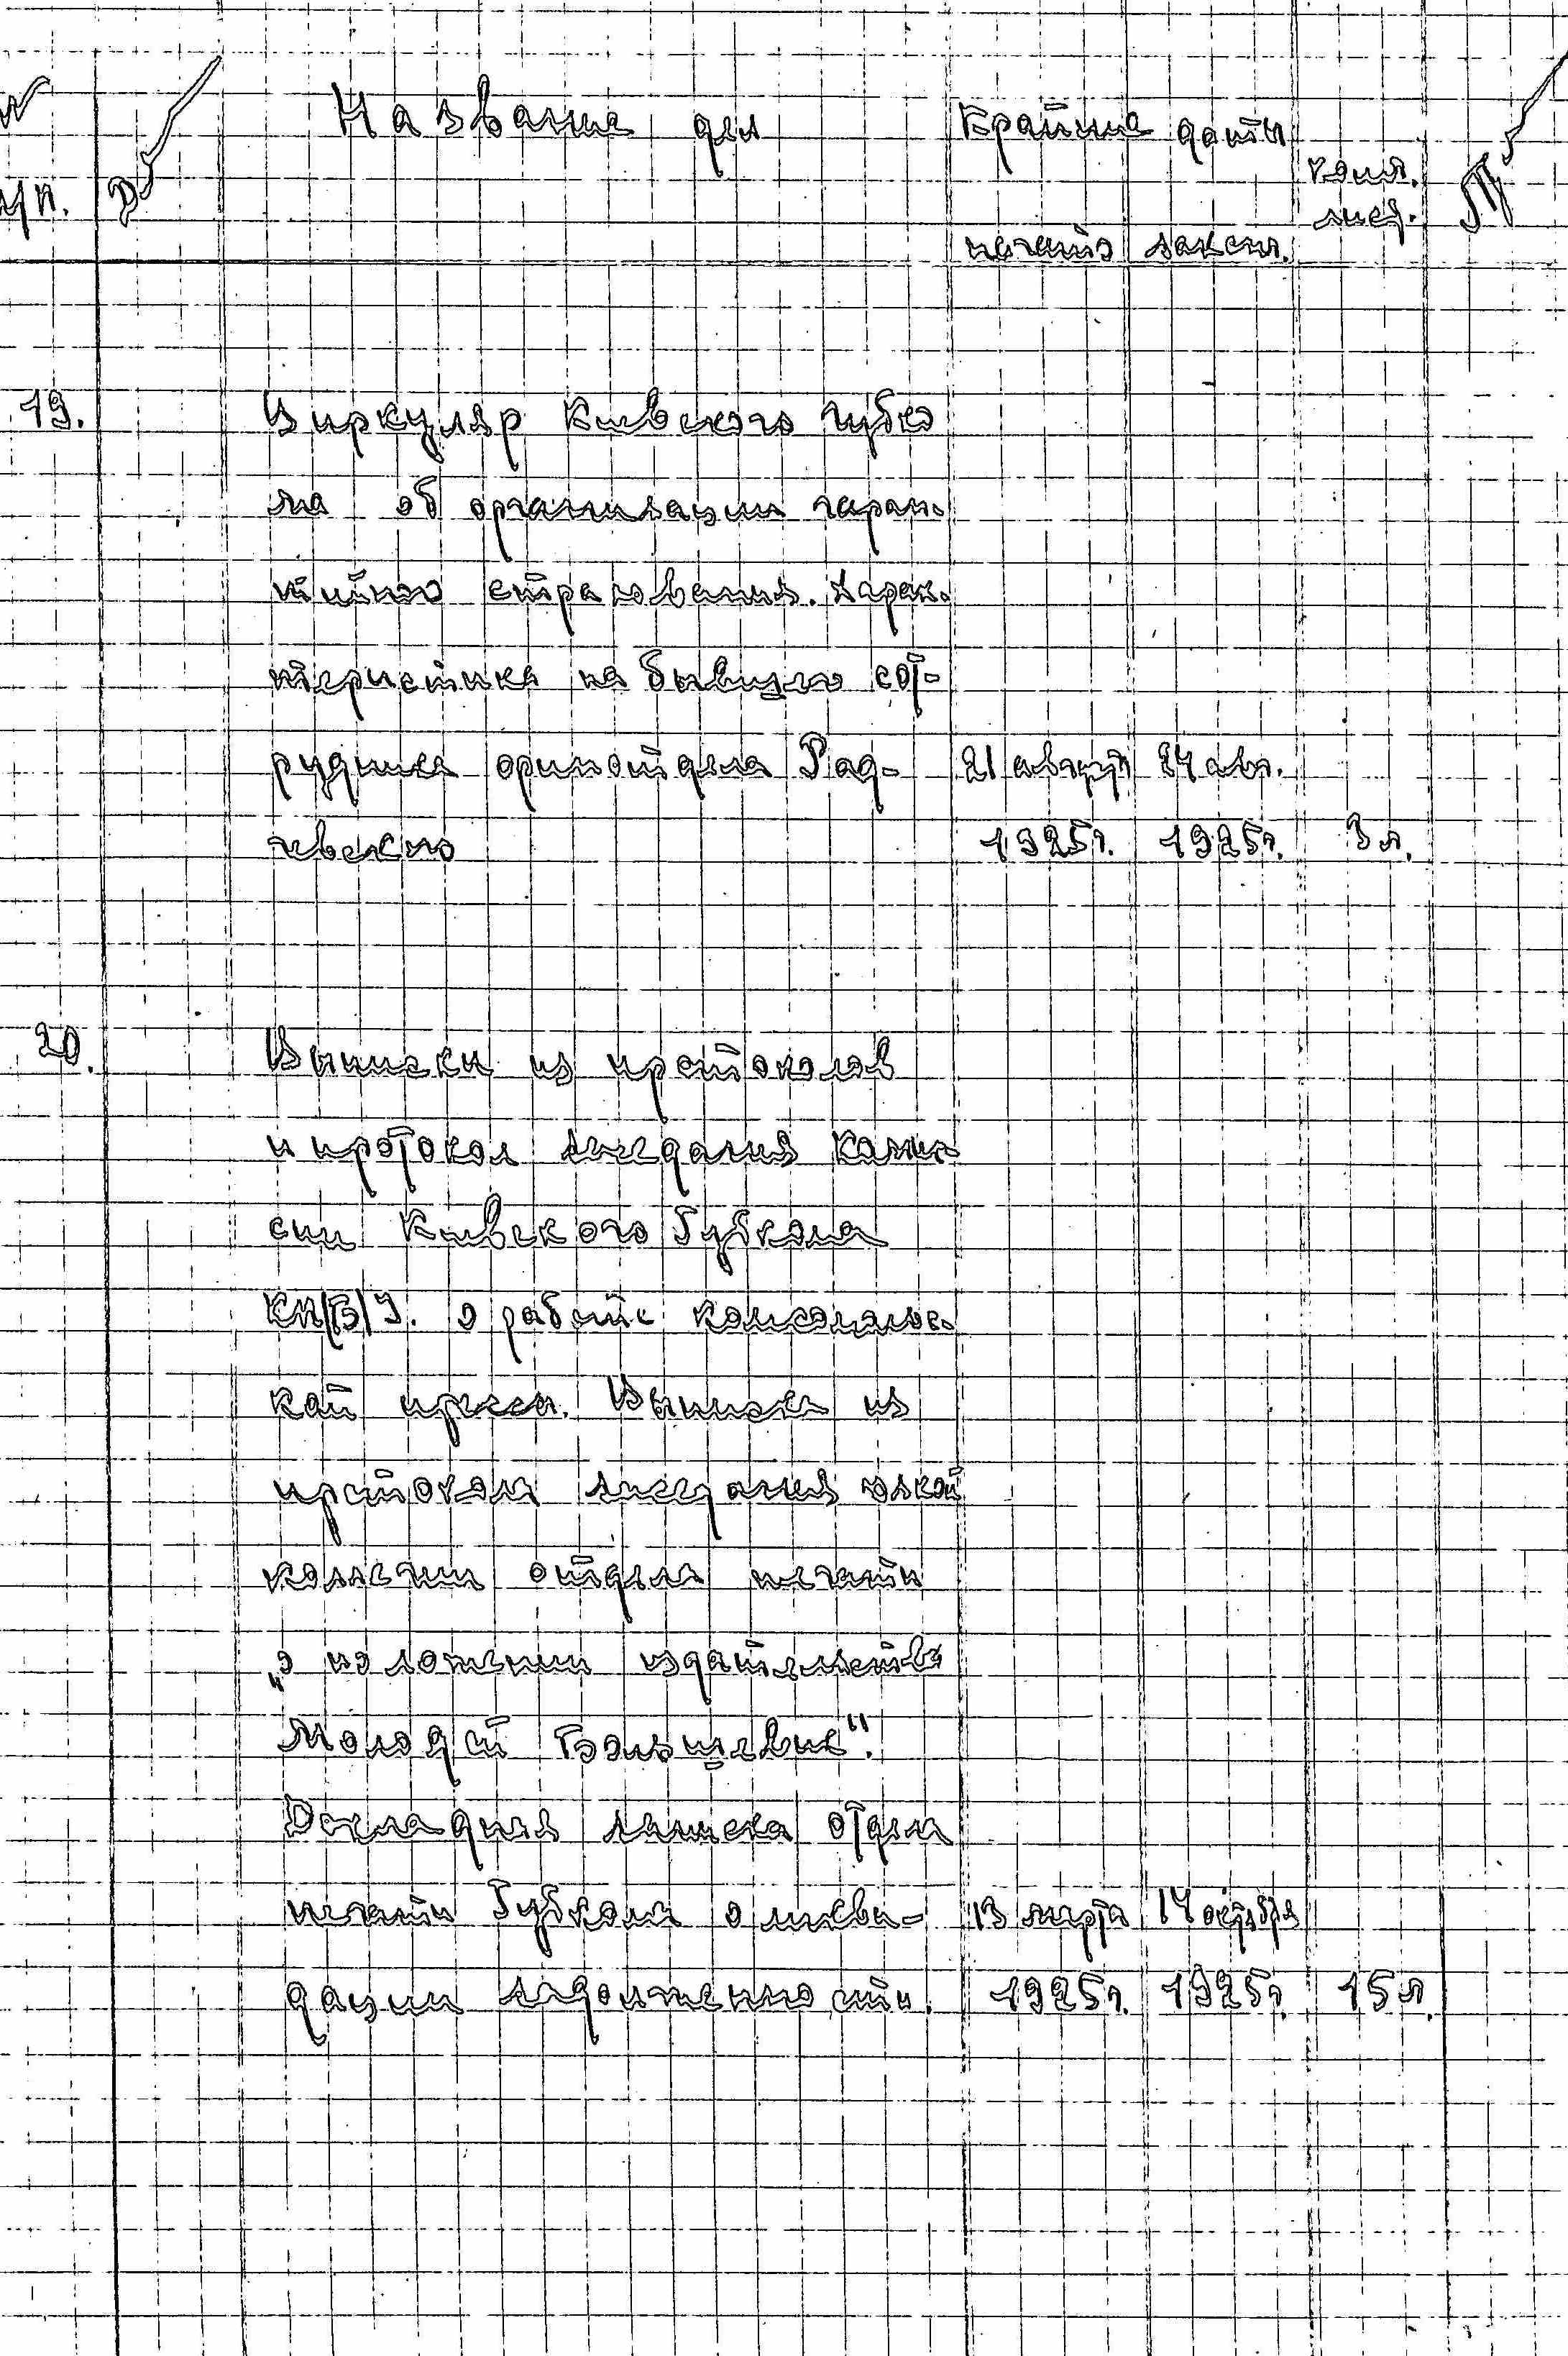 № Название дел Крайние даты
п/п. колич. лист.
начато законч.
19. Циркуляр Киевского Губко
ма об организации гаран-
тийного страхования. Харак-
теристика на бывшего сот-
рудника орготдела Рад- 21 августа 24 авг.
чевского 1925г. 1925г. 3 л.
20. Выписки из протоколов
и протокол заседания комис-
сии Киевского Губкома
КП/Б/У. о работе комсомольс-
кой прессы. Выписка из
протокола заседания узкой
коллегии отдела печати
„о положении издательства
Молодой Большевик".
Докладная записка отдела
печати Губкома о ликви- 13 марта 14 октября
дации задолженности. 1925г. 1925г. 15 л.